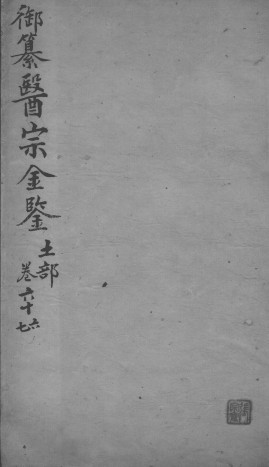 御纂醫宗金鑒
土部
卷六十六
七